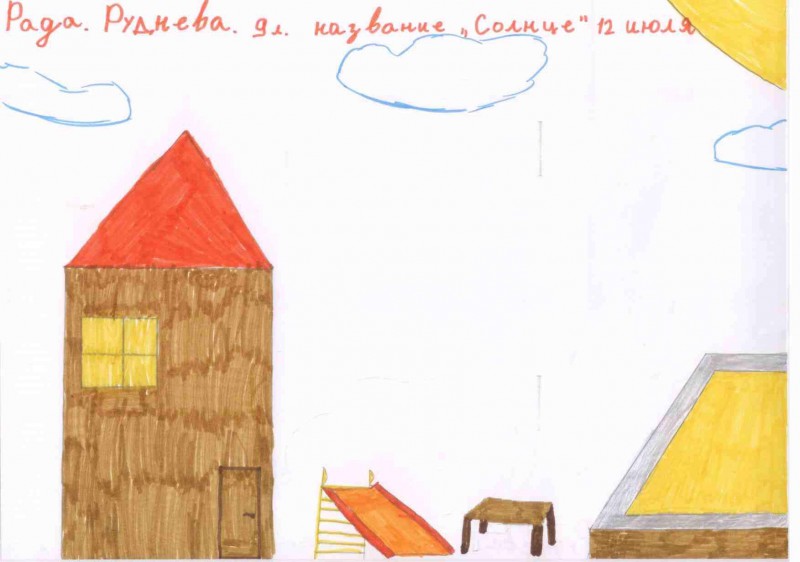 Рада. Руднева. 9л. название „Солнце" 12 июля